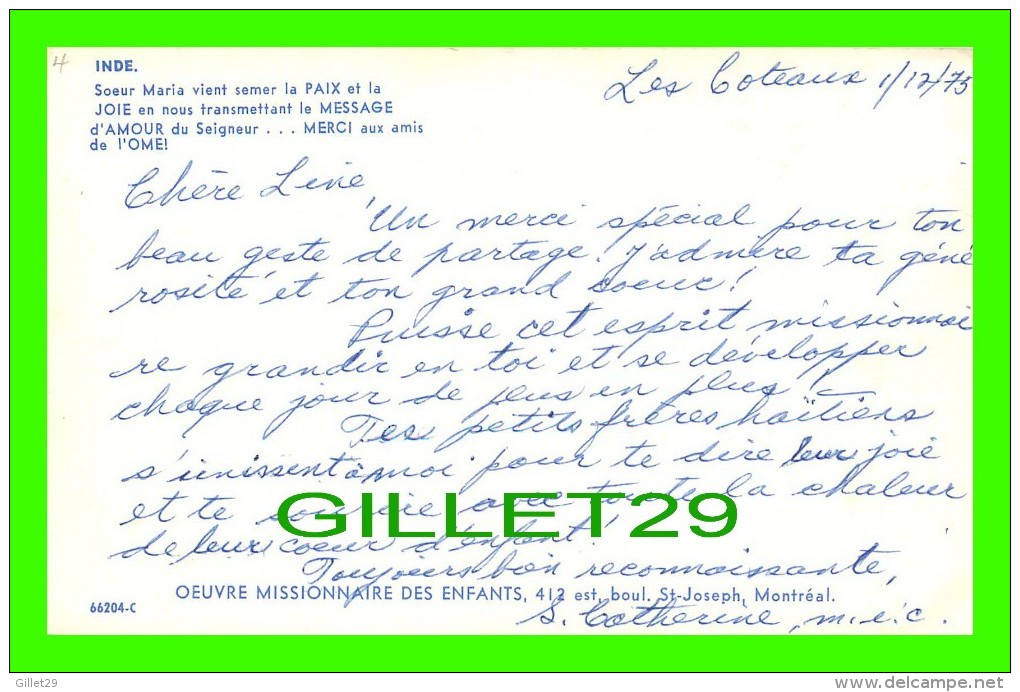 4
INDE.
Soeur Maria vient semer la PAIX et la
JOIE en nous transmettant le MESSAGE
d'AMOUR du Seigneur . . . MERCI aux amis
de l'OME!
Les Coteaux 1/12/75
Chère Line,
Un merci spécial pour ton
beau geste de partage. J'admire ta géné
rosité et ton grand coeur!
Puisse cet esprit missionnai
re grandir en toi et se développer
chaque jour de plus en plus!
Tes petits frères haïtiens
s'unissent à moi pour te dire leur joie
et te sourire avec toute la chaleur
de leur coeur d'enfant!
Toujours bien reconnaissante,
S. Catherine, m.i.c.
OEUVRE MISSIONNAIRE DES ENFANTS, 412 est, boul. St-Joseph, Montréal.
66204-C
GILLET29
Gillet29
www.delcampe.net